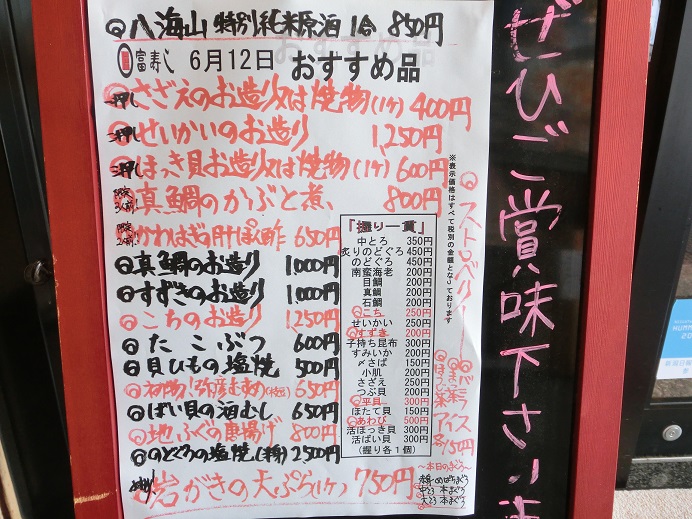 八海山 特別純米原酒 1合 850円
富寿し 6月12日 おすすめ品
一押し さざえのお造り又は焼物(1ケ) 400円
二押し せいかいのお造り 1,250円
三押し ほっき貝お造り又は焼物(1ケ) 600円
真鯛のかぶと煮 800円
かわはぎの肝ぽん酢 650円
真鯛のお造り 1000円
すずきのお造り 1000円
こちのお造り 1,250円
たこぶつ 600円
貝ひもの塩焼 500円
初物!弥彦むすめ(枝豆) 650円
ばい貝の酒むし 650円
地ふぐの唐揚げ 800円
のどぐろの塩焼(1本) 2,500円
岩がきの天ぷら(1ケ) 750円
「握り一貫」
中とろ 350円
炙りのどぐろ 450円
のどぐろ 450円
南蛮海老 200円
目鯛 200円
真鯛 200円
石鯛 200円
こち 250円
せいかい 250円
すずき 200円
子持ち昆布 300円
すみいか 200円
〆さば 150円
小肌 200円
さざえ 250円
つぶ貝 200円
平貝 300円
ほたて貝 150円
あわび 500円
活ほっき貝 300円
活ばい貝 300円
(握り各1個)
※表示価格はすべて税別の金額となっております
ストロベリー
アイス
各150円
~本日のまぐろ~
中とろ 本まぐろ
大とろ 本まぐろ
ぜひご賞味下さいま